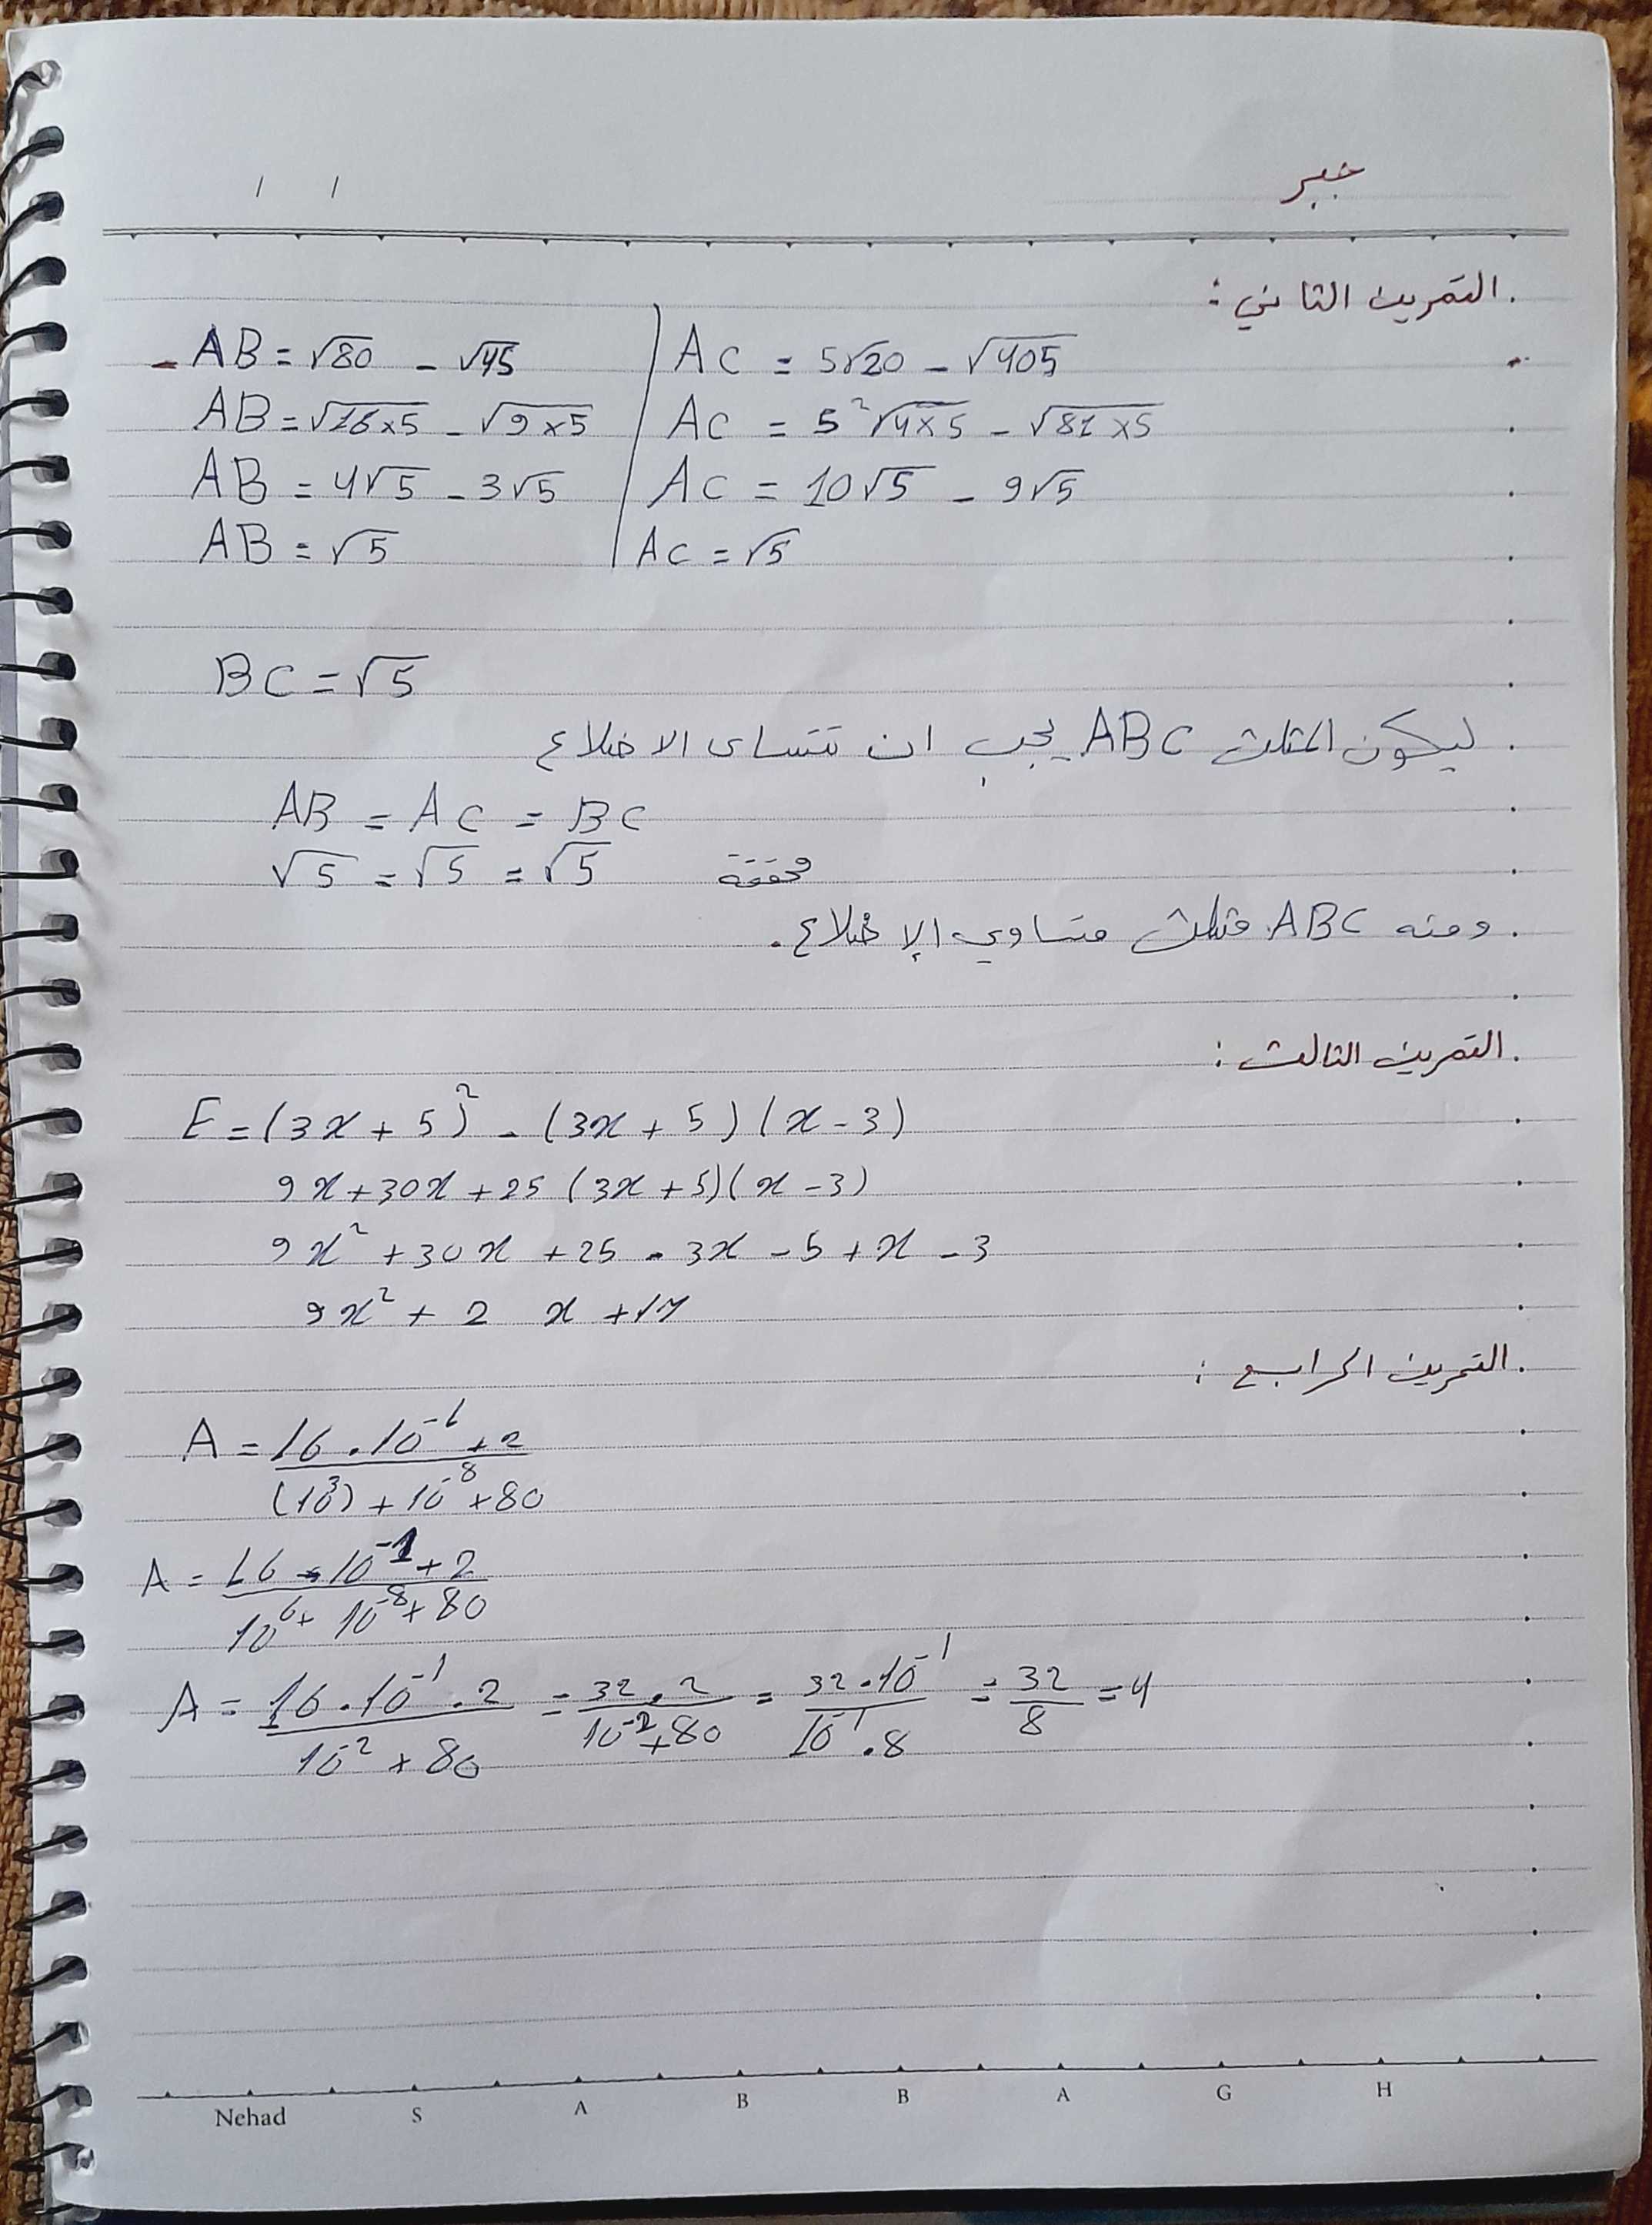 جبر
/ /
التمرين الثاني :
AB = √80 - √45
AB = √16×5 - √9×5
AB = 4√5 - 3√5
AB = √5
AC = 5√20 - √405
AC = 5 ²√4×5 - √81×5
AC = 10√5 - 9√5
AC = √5
BC = √5
ليكون المثلث ABC يجب ان تتساى الاضلاع
AB = AC = BC
√5 = √5 = √5 محققة
ومنه ABC مثلث متساوي الإضلاع.
التمرين الثالث :
E = (3x + 5)² - (3x + 5)(x - 3)
9x + 30x + 25 (3x + 5)(x - 3)
9x² + 30x + 25 - 3x - 5 + x - 3
9x² + 2 x + 17
التمرين الرابع :
A = 16 . 10⁻¹ × 2
(10³) × 10⁻⁸ × 80
A = 16 . 10⁻¹ + 2
10⁶ × 10⁻⁸ × 80
A = 16 . 10⁻¹ . 2 = 32 . 2 = 32 . 10⁻¹ = 32 = 4
10⁻² × 80 10⁻² × 80 10⁻¹ . 8 8
Nehad S A B B A G H